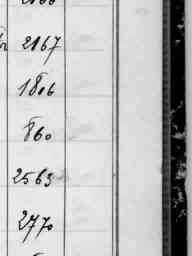 2167
1806
860
2563
2770